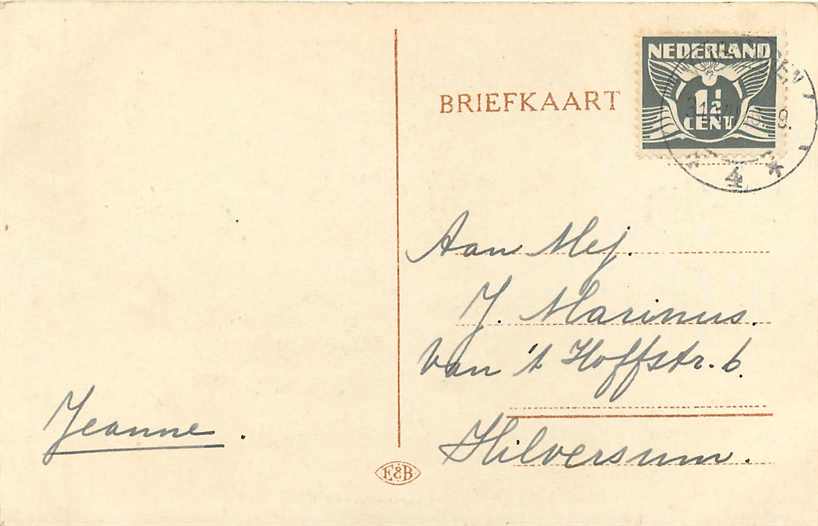 BRIEFKAART
NEDERLAND
1½
CENT
4
Aan Mej.
J. Marinus.
Van 't Hoffstr. 6.
Hilversum.
Jeanne.
E&B